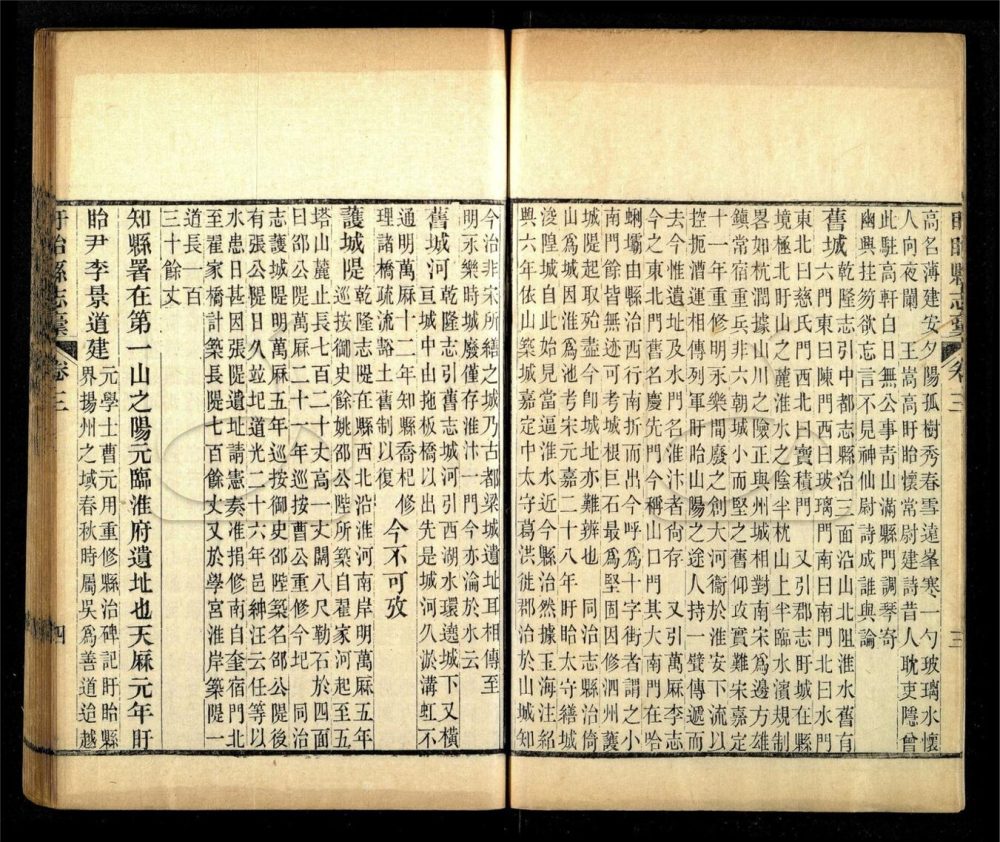 盱眙縣志藁 卷三 三
高名溥建安夕陽孤樹秀春雪遠峯寒一勺玻璃水懷
人向夜闌 王嵩高盱眙懷常尉建詩昔人耽吏隱曾
此駐高軒白日無公事青山滿縣門調琴寄
幽興拄笏欲忘言不見神仙尉詩成誰與論
舊城 乾隆志引中都志縣治三面沿山北阻淮水舊有
六門東曰陳門西曰玻璃門南曰南門北曰水門
東北曰慈氏門西北曰寶積門 又引郡志盱城在縣
境極北盱山之麓淮水之陰半枕山上半臨水濱規制
畧如杭潤據山川之險正與州城相對南宋爲邊方雄
鎮常宿重兵非六朝城小而堅之舊仰攻實難宋嘉定
十一年重修明永樂間廢之創大河衞於淮安下流以
控扼漕運相傳列軍盱眙山陽之途人持一甓傳遞而
去今惟遺址及水門名淮汴者尙存 又引萬厤李志
今之東北門舊名慶先門今稱山口門其大南門在哈
蜊壩由縣治西行南折而出今呼爲十字街者謂之小
南門皆餘舊迹可考城根巨石最爲堅固因修泗州護
城隄起取殆盡今卽城址亦難辨也 同治志縣治倚
山爲城因淮爲池考宋元嘉二十八年盱眙太守繕城
浚隍城自此始見當逼淮水近今縣治然據玉海注紹
興六年依山築城嘉定中太守葛洪徙郡治於山城知
今治非宋所繕之城乃古都梁城遺址耳相傳至
明永樂時城廢僅存淮汴一門今亦淪於水云
舊城河 乾隆志引舊志城河引西湖水環遶城下又橫
亘城中由拖板橋以出先是城河久淤溝虹不
通明萬厤十二年知縣喬杞修
理諸橋疏濬豁土舊制以復 今不可攷
護城隄 乾隆志隄在縣西北沿淮河南岸明萬厤五年
巡按御史餘姚邵公陛所築自翟家河起至五
塔山麓止長七百二十丈高一丈闊八尺勒石於四面
曰邵公隄萬厤二十一年巡按曹公重修今圮 同治
志護城隄明萬厤五年巡按御史邵陛築名邵公隄後
有張公隄日久竝圮道光二十六年邑紳汪云任等以
水患日甚因張隄遺址請憲奏准捐修南自奎宿門北
至翟家橋計築長隄七百餘丈又於學宮淮岸築隄一
道長一百
三十餘丈
知縣署在第一山之陽元臨淮府遺址也天厤元年盱
眙尹李景道建 元學士曹元用重修縣治碑記盱眙縣
界揚州之域春秋時屬吳爲善道迨越
盱眙縣志藁 卷三 四